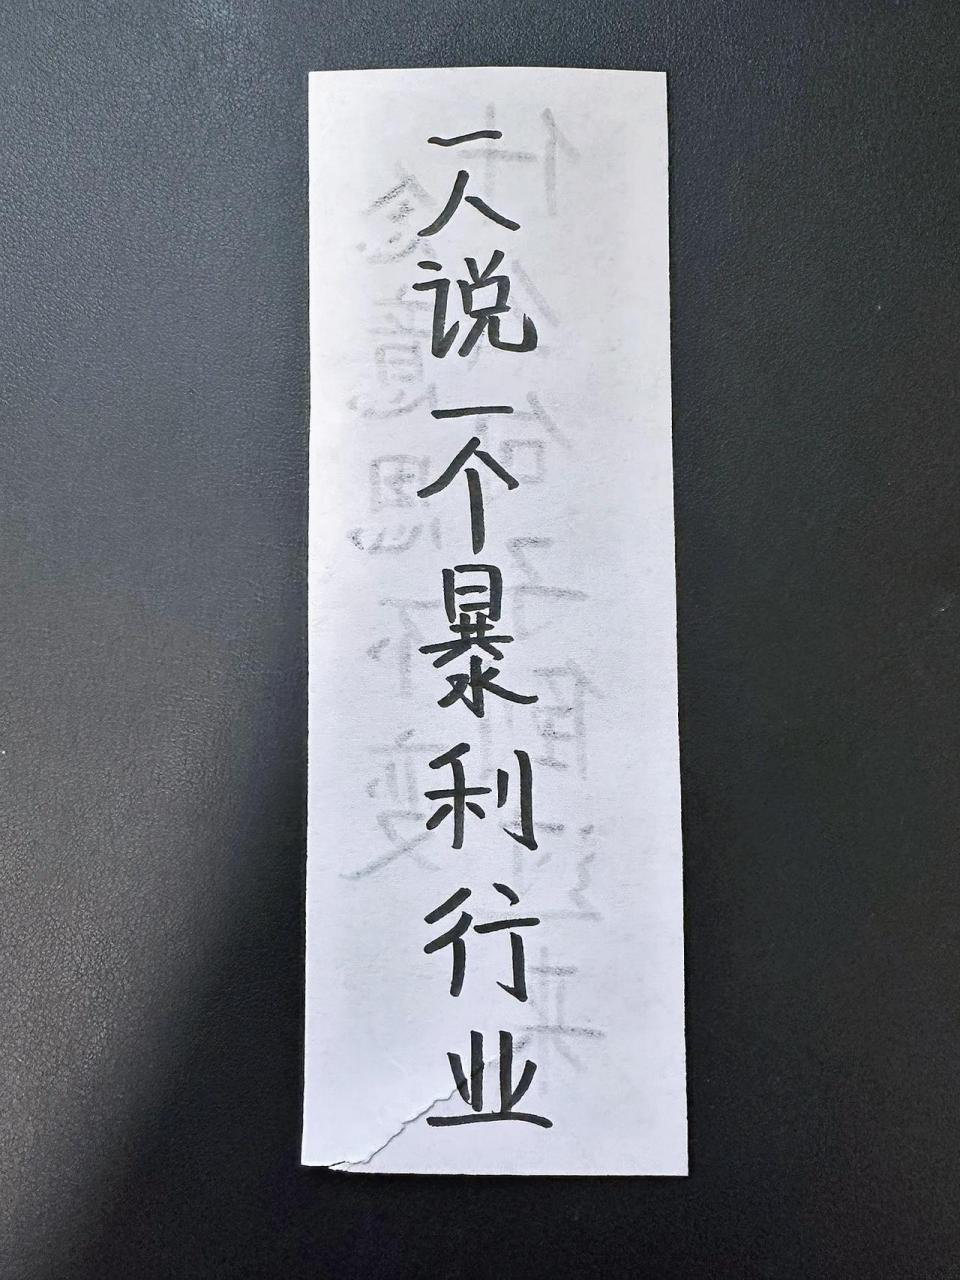 一人说一个暴利行业